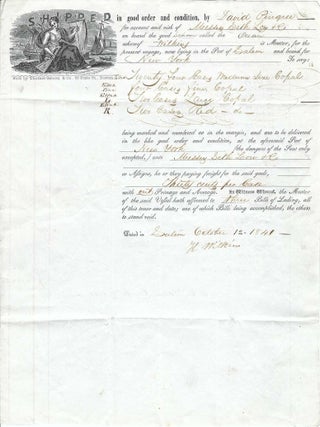 SHIPPED in good order and condition, by David Pingree
for account and risk of Messrs Seth Low & Co
on board the good called the
whereof Wilkins is Master, for the
present voyage, now lying in the Port of Salem and bound for
New York To say:
Twenty Four Cases Medium Size Copal
Four Cases fine Copal
Two Cases Large Copal
R Two Cases Red do
being marked and numbered as in the margin, and are to be delivered
in the like good order and condition, at the aforesaid Port of
New York (the dangers of the Seas only
excepted,) unto Messrs Seth Low & Co
or Assigns, he or they paying freight for the said goods,
Thirty cents per Case
with out Primage and Average. In Witness Whereof, the Master
of the said Vessel hath affirmed to three Bills of Lading, all
of this tenor and date; one of which Bills being accomplished, the others
to stand void.
Dated in Salem October 12 - 1841 -
Wilkins